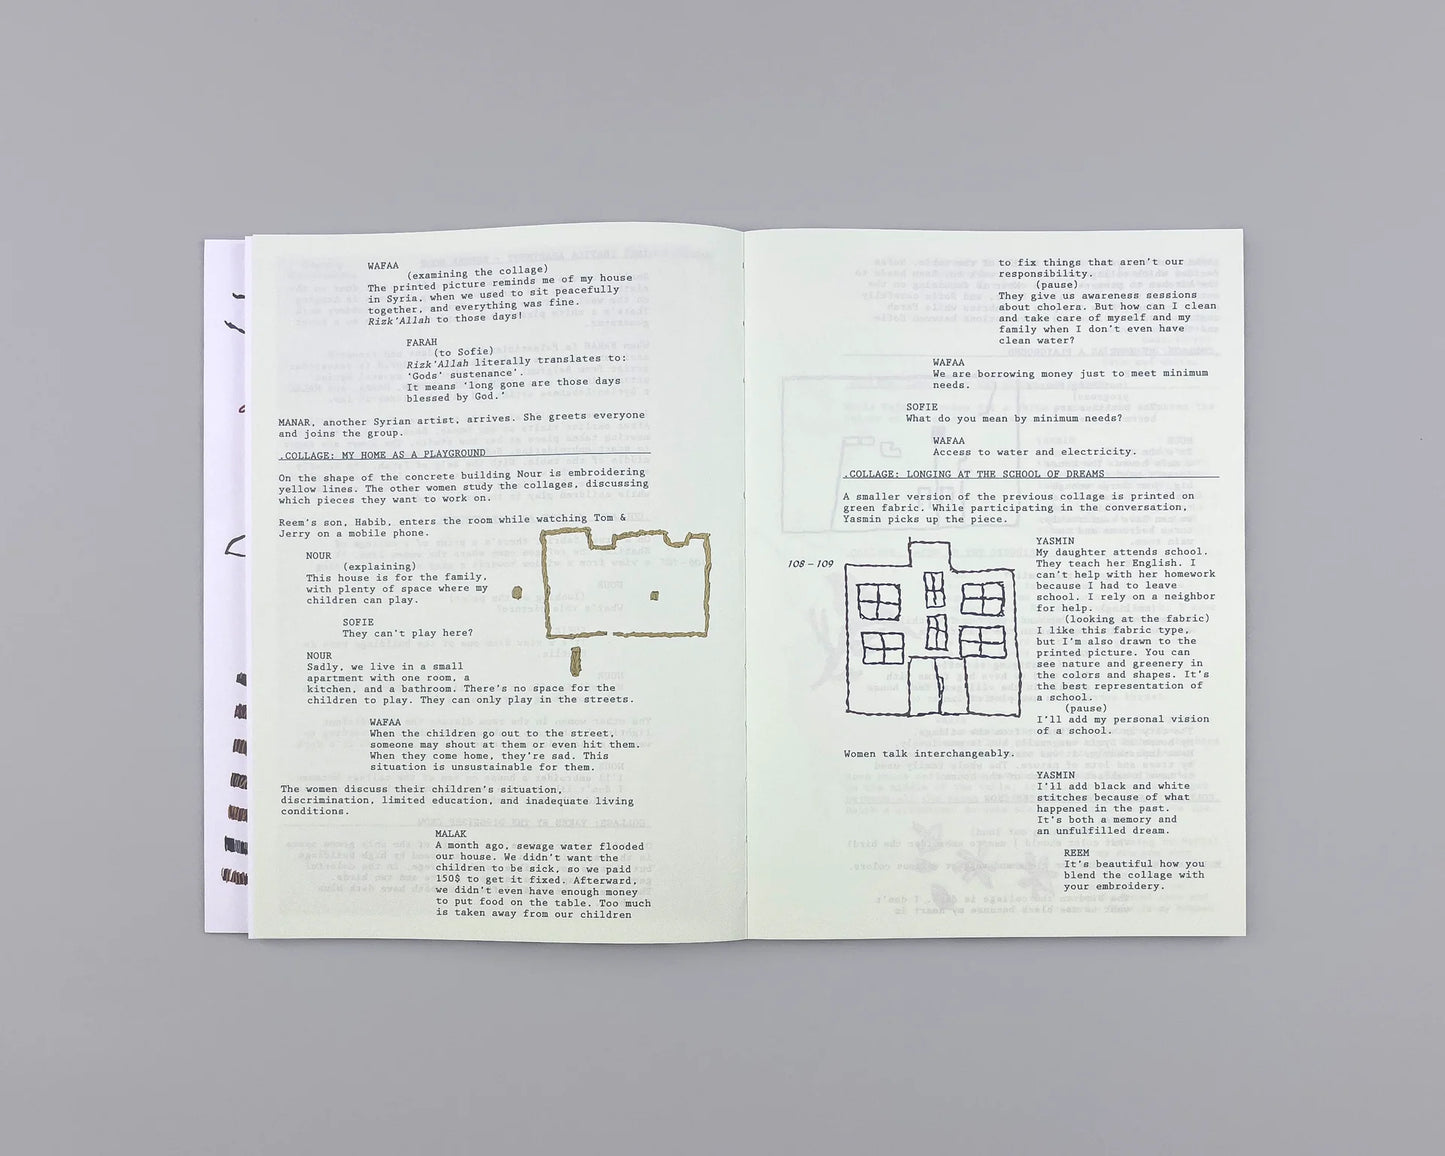 WAFAA
(examining the collage)
The printed picture reminds me of my house
in Syria. when we used to sit peacefully
together, and everything was fine.
Rizk'Allah to those days!
FARAH
(to Sofie)
Rizk'Allah literally translates to:
‘Gods’ sustenance’.
It means ‘long gone are those days
blessed by God.’
MANAR, another Syrian artist, arrives. She greets everyone
and joins the group.
.COLLAGE: MY HOME AS A PLAYGROUND
On the shape of the concrete building Nour is embroidering
yellow lines. The other women study the collages, discussing
which pieces they want to work on.
Reem's son, Habib, enters the room while watching Tom &
Jerry on a mobile phone.
NOUR
(explaining)
This house is for the family,
with plenty of space where my
children can play.
SOFIE
They can't play here?
NOUR
Sadly, we live in a small
apartment with one room, a
kitchen, and a bathroom. There's no space for the
children to play. They can only play in the streets.
WAFAA
When the children go out to the street,
someone may shout at them or even hit them.
When they come home, they're sad. This
situation is unsustainable for them.
The women discuss their children's situation,
discrimination, limited education, and inadequate living
conditions.
MALAK
A month ago, sewage water flooded
our house. We didn't want the
children to be sick, so we paid
150$ to get it fixed. Afterward,
we didn't even have enough money
to put food on the table. Too much
is taken away from our children
to fix things that aren't our
responsibility.
(pause)
They give us awareness sessions
about cholera. But how can I clean
and take care of myself and my
family when I don't even have
clean water?
WAFAA
We are borrowing money just to meet minimum
needs.
SOFIE
What do you mean by minimum needs?
WAFAA
Access to water and electricity.
.COLLAGE: LONGING AT THE SCHOOL OF DREAMS
A smaller version of the previous collage is printed on
green fabric. While participating in the conversation,
Yasmin picks up the piece.
108 – 109
YASMIN
My daughter attends school.
They teach her English. I
can't help with her homework
because I had to leave
school. I rely on a neighbor
for help.
(looking at the fabric)
I like this fabric type,
but I'm also drawn to the
printed picture. You can
see nature and greenery in
the colors and shapes. It's
the best representation of
a school.
(pause)
I'll add my personal vision
of a school.
Women talk interchangeably.
YASMIN
I'll add black and white
stitches because of what
happened in the past.
It's both a memory and
an unfulfilled dream.
REEM
It's beautiful how you
blend the collage with
your embroidery.